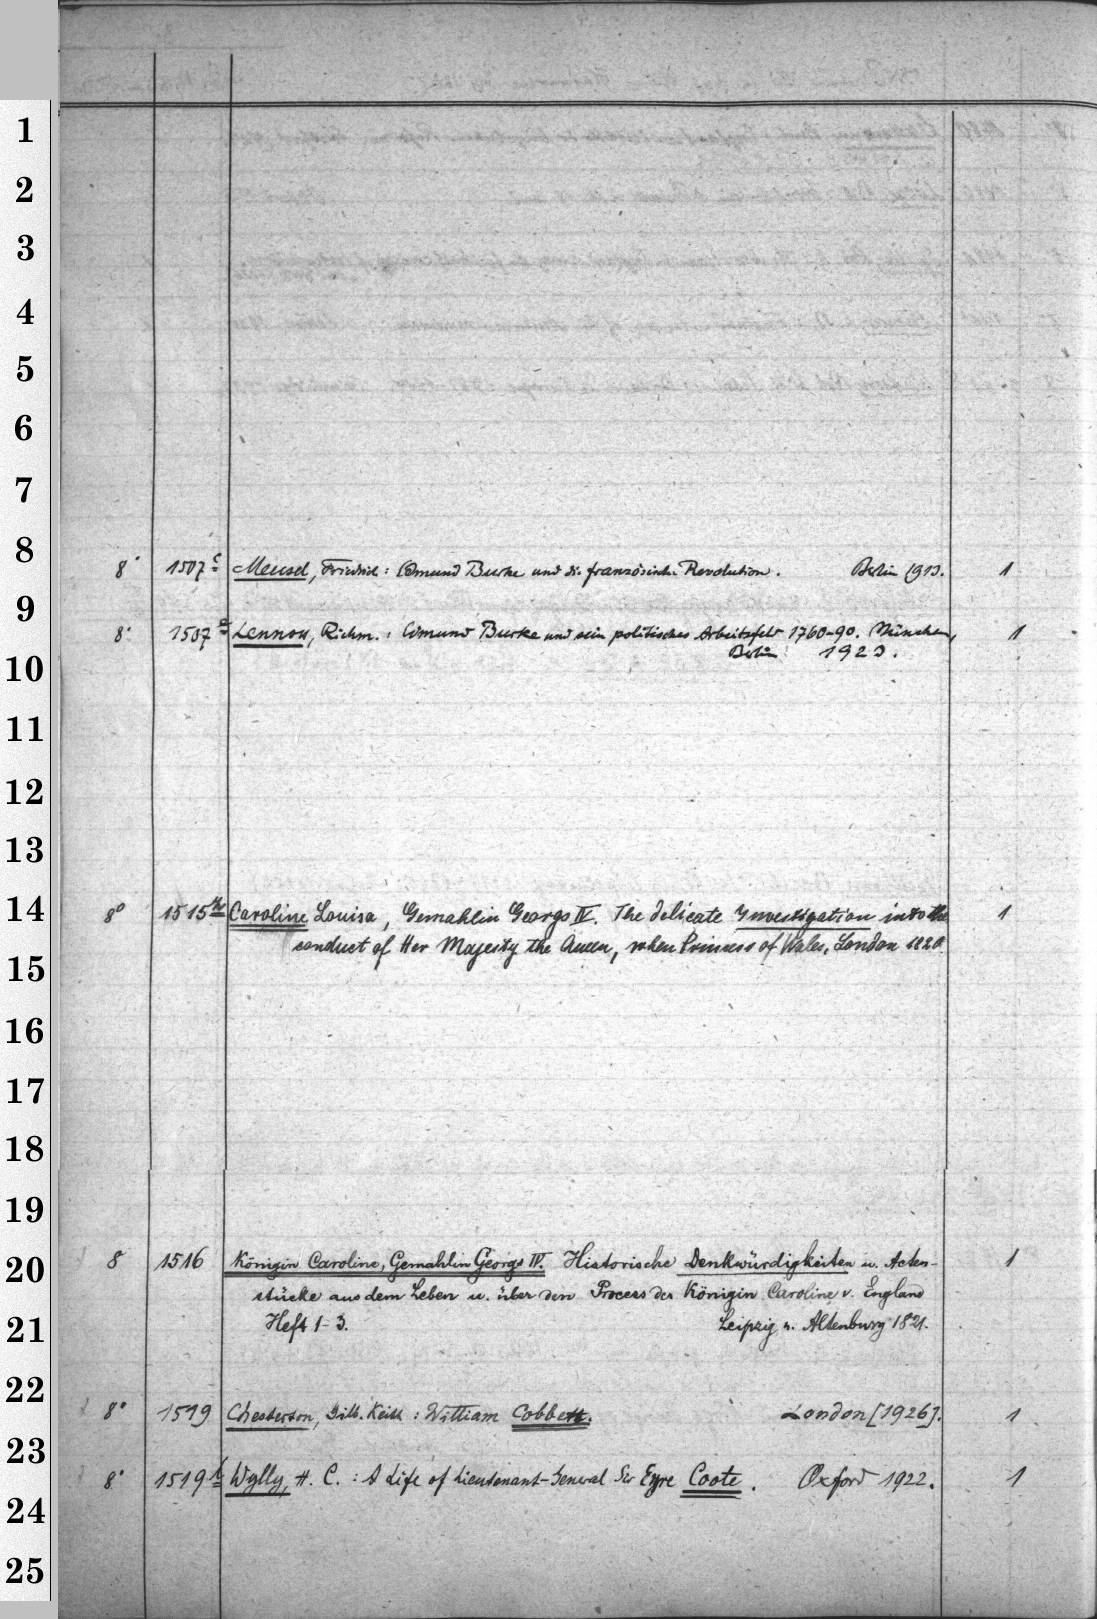 1
2
3
4
5
6
7
8
8° 1507 c Meusel, Friedrich: Edmund Burke und die französische Revolution. Berlin 1913. 1
9
8° 1507 Lennox, Richm.: Edmund Burke und sein politisches Arbeitsfeld 1760-90. München, 1
10
Berlin 1923.
11
12
13
14
8° 1515 Caroline Louisa, Gemahlin Georgs IV. The delicate Investigation into the 1
conduct of Her Majesty the Queen, when Princess of Wales, London 1820.
15
16
17
18
19
20
8 1516 Königin Caroline, Gemahlin Georgs IV. Historische Denkwürdigkeiten u. Acten- 1
stücke aus dem Leben u. über den Process der Königin Caroline v. England
21
Heft 1-3. Leipzig u. Altenburg 1821.
22
8° 1519 Chesterton, Gilb. Keith: William Cobbett. London [1926]. 1
23
8° 1519 Wylly, H. C.: A Life of Lieutenant-General Sir Eyre Coote. Oxford 1922. 1
24
25